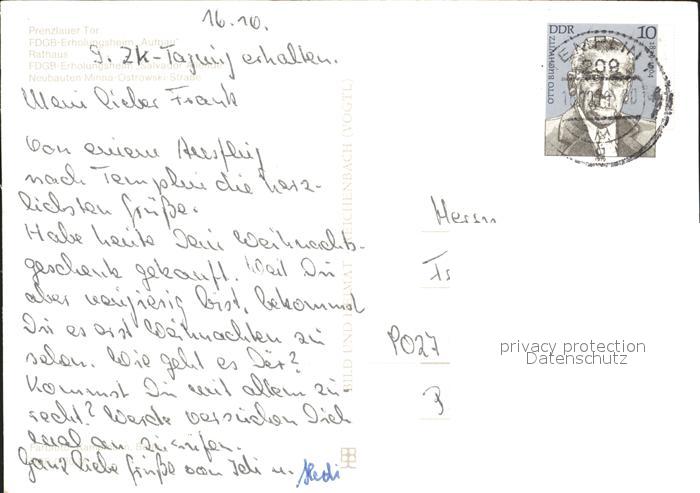 16.10.
Prenzlauer Tor
FDGB-Erholungsheim "Aufbau"
Rathaus
FDGB-Erholungsheim "Salvador
Neubauten Minna-Ostrowski-Straße
9. ZK-Tagung erhalten.
Mein lieber Frank
Von einem Ausflug
nach Templin die herz-
lichsten Grüße.
Habe heute Dein Weihnachts-
geschenk gekauft. Weil Du
aber neugierig bist, bekommst
Du es erst Weihnachten zu
sehen. Wie geht es Dir?
Kommst Du mit allem zu-
recht? Werde versuchen Dich
mal an zu rufen.
Ganz liebe Grüße von Ich u. Hedi
BILD UND HEIMAT REICHENBACH (VOGTL)
DDR 10
OTTO BUCHWITZ
TEMPLIN
209
Herrn
PO27
privacy protection
Datenschutz